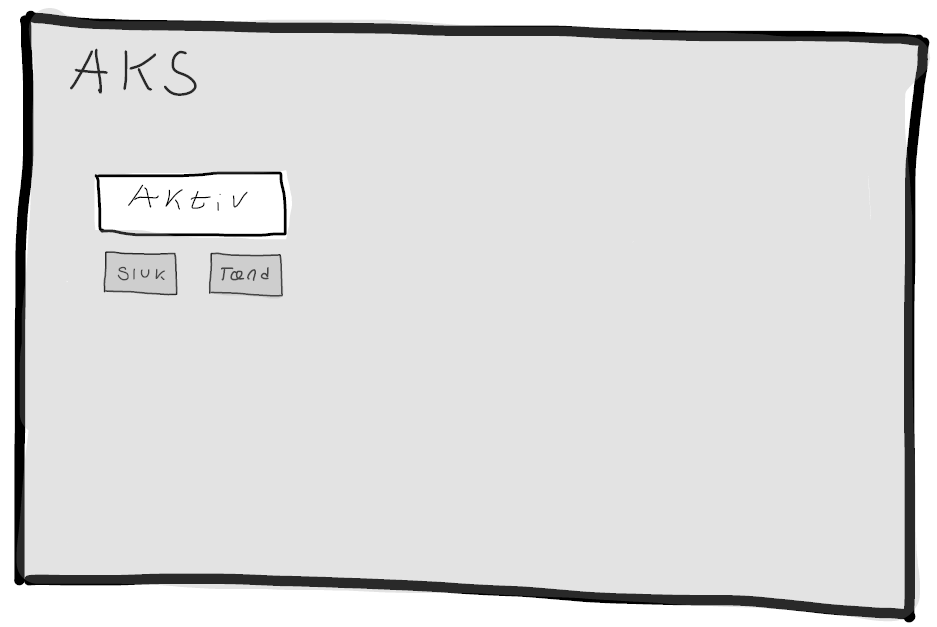 AKS
Aktiv
Sluk Tænd